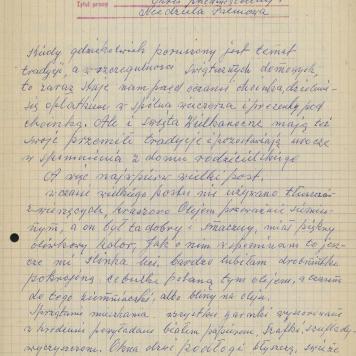 Tytuł pracy
Okres przedświąteczny.
Niedziela Palmowa
Kiedy gdziekolwiek poruszony jest temat
tradycji, a w szczególności świątecznych domowych,
to zaraz staje nam przed oczami choinka, dzielenie
się opłatkiem wspólna wieczerza i prezenty pod
choinką. Ale i święta Wielkanocne mają też
swoje przemiłe tradycje i pozostawiają mocne
wspomnienia z domu rodzicielskiego
A więc najpierw wielki post,
w czasie wielkiego postu nie używano tłuszczów
zwierzęcych, kraszono olejem przeważnie
a on był tak dobry i smaczny, miał piękny
kolor, Jak o nim wspominam to jesz-
cze mi ślinka leci, bardzo lubiłam drobniutko
pokrojoną cebulkę polaną tym olejem, a czasem
do tego ziemniaczki, albo bliny na oleju.
Sprzątanie mieszkania. wszystkie garnki wyszorowane
w kredensie powykładane białym papierem, szafki, szuflady
wyczyszczone. Okna drzwi podłogi błyszczą, świeże